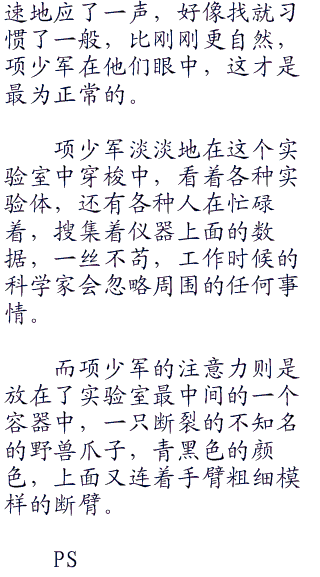 速地应了一声，好像找就习
惯了一般，比刚刚更自然，
项少军在他们眼中，这才是
最为正常的。
项少军淡淡地在这个实
验室中穿梭中，看着各种实
验体，还有各种人在忙碌
着，搜集着仪器上面的数
据，一丝不苟，工作时候的
科学家会忽略周围的任何事
情。
而项少军的注意力则是
放在了实验室最中间的一个
容器中，一只断裂的不知名
的野兽爪子，青黑色的颜
色，上面又连着手臂粗细模
样的断臂。
PS